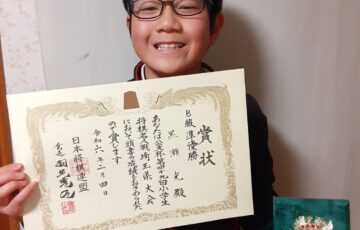 賞状
B級準優勝
黒瀬 光 殿
あなたは公文杯第四十九回小学生
将棋名人戦埼玉県大会
において頭書の成績をおさめられた
ので賞します
令和六年二月四日
日本将棋連盟
会長